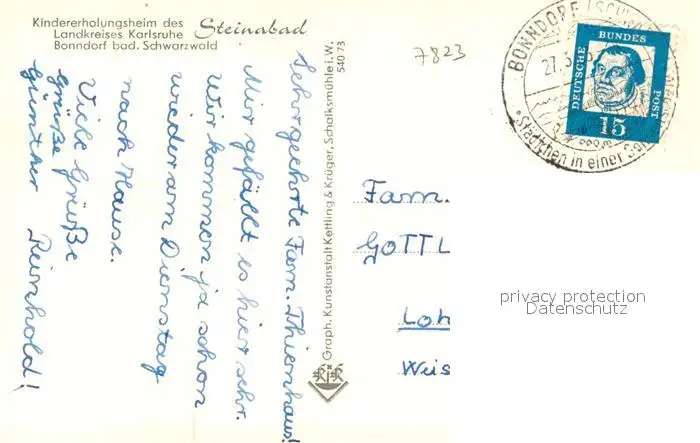 Kindererholungsheim des
Landkreises Karlsruhe
Bonndorf bad. Schwarzwald
Steinabad
Sehrgeehrte Fam. Thiernhaus!
Mir gefällt es hier sehr.
Wir kommen ja schon
wieder am Dienstag
nach Hause.
Viele Grüße
Grüße
Günther Reinhold!
Graph. Kunstanstalt Kettling & Krüger, Schalksmühle i. W.
540 73
7823
BONNDORF (SCHW
27.3.
Städtchen in einer So
DEUTSCHE
BUNDES
POST
15
Fam.
GOTTL
Loh
Weis
privacy protection
Datenschutz